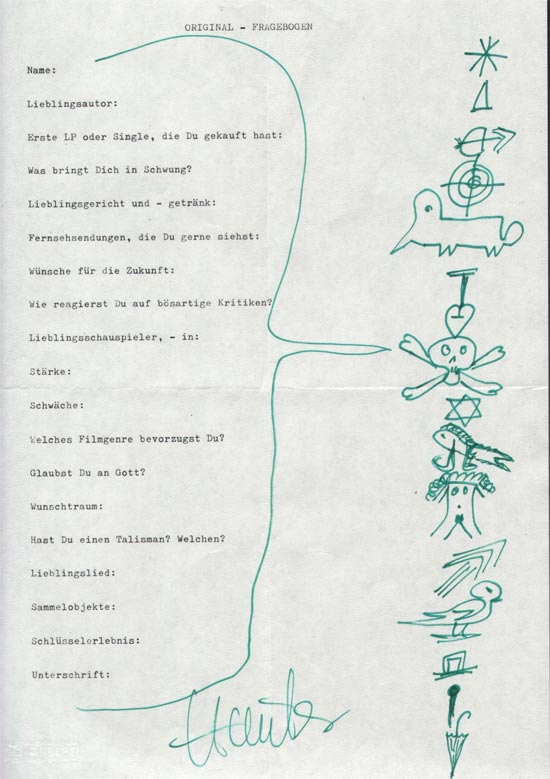 ORIGINAL - FRAGEBOGEN
Name:
Lieblingsautor:
Erste LP oder Single, die Du gekauft hast:
Was bringt Dich in Schwung?
Lieblingsgericht und - getränk:
Fernsehsendungen, die Du gerne siehst:
Wünsche für die Zukunft:
Wie reagierst Du auf bösartige Kritiken?
Lieblingsschauspieler, - in:
Stärke:
Schwäche:
Welches Filmgenre bevorzugst Du?
Glaubst Du an Gott?
Wunschtraum:
Hast Du einen Talisman? Welchen?
Lieblingslied:
Sammelobjekte:
Schlüsselerlebnis:
Unterschrift: